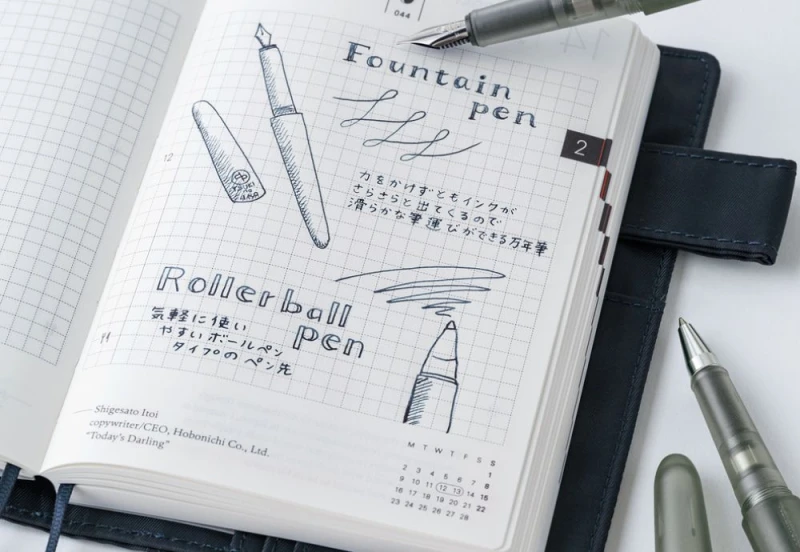 044
Fountain
pen
2
12
力をかけずともインクが
さらさらと出てくるので
滑らかな筆運びができる万年筆
Rollerball
pen
気軽に使い
やすいボールペン
タイプのペン先
Shigesato Itoi
copywriter/CEO, Hobonichi Co., Ltd.
"Today's Darling"
M T W T F S S
1
2 3 4 5 6 7 8
9 10 11 12 13 14 15
16 17 18 19 20 21 22
23 24 25 26 27 28